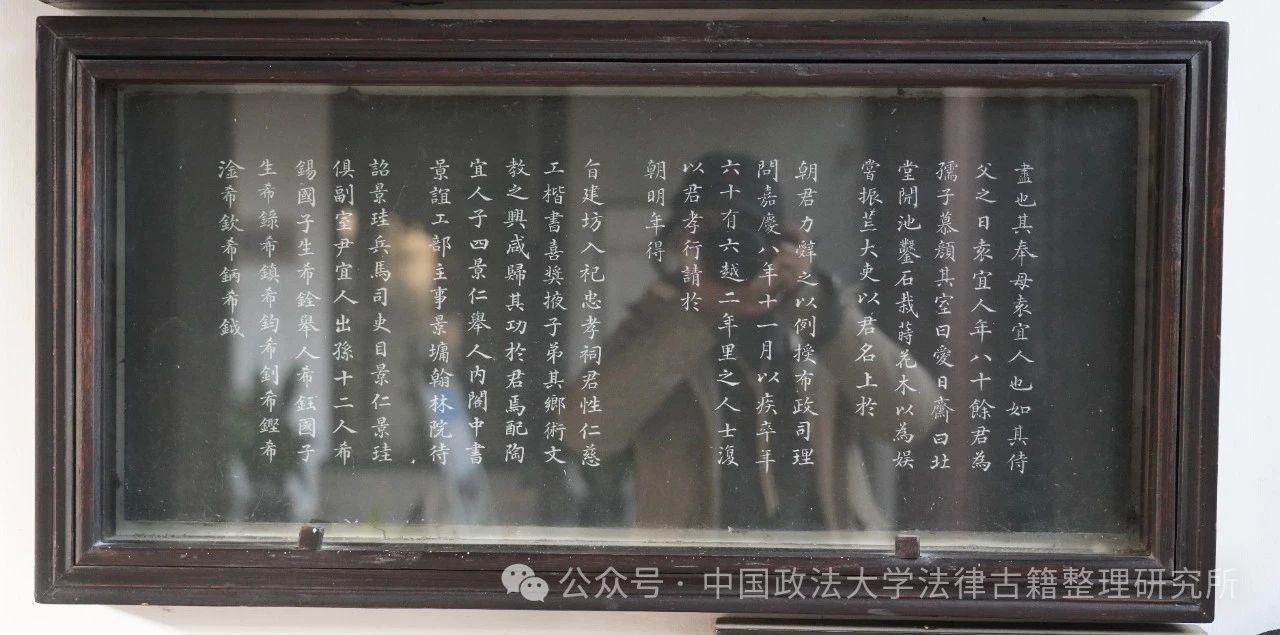 盡也其奉母袁宜人也如其侍
父之日袁宜人年八十餘君為
孺子慕顏其室曰愛日齋曰北
堂開池鑿石栽蒔花木以為娛
嘗振荒大吏以君名上於
朝君力辭之以例授布政司理
問嘉慶八年十一月以疾卒年
六十有六越二年里之人士復
以君孝行請於
朝明年得
旨建坊入祀忠孝祠君性仁慈
工楷書喜奬掖子弟其鄉術文
教之興咸歸其功於君焉配陶
宜人子四景仁舉人內閣中書
景誼工部主事景墉翰林院待
詔景珪兵馬司吏目景仁景珪
俱副室尹宜人出孫十二人希
錫國子生希銓舉人希鈺國子
生希錄希鎮希鈞希釗希鏗希
淦希欽希鈵希鉞
公众号·中国政法大学法律古籍整理研究所